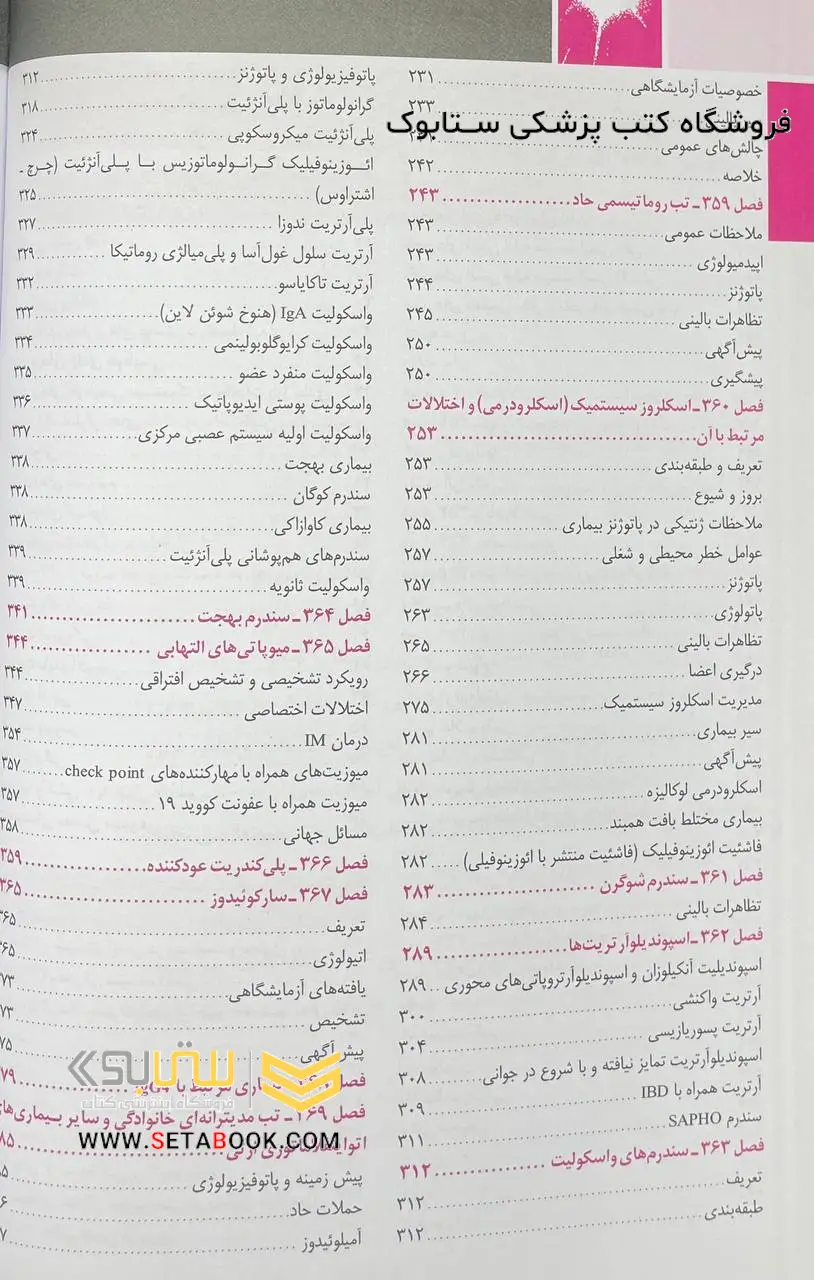 فروشگاه کتب پزشکی ستابوک
خصوصیات آزمایشگاهی ۲۳۱
۲۳۳
چالش‌های عمومی
خلاصه ۲۴۲
فصل ۳۵۹ـ تب روماتیسمی حاد ۲۴۳
ملاحظات عمومی ۲۴۳
اپیدمیولوژی ۲۴۳
پاتوژنز ۲۴۴
تظاهرات بالینی ۲۴۵
پیش‌آگهی ۲۵۰
پیشگیری ۲۵۰
فصل ۳۶۰ـ اسکلروز سیستمیک (اسکلرودرمی) و اختلالات
مرتبط با آن ۲۵۳
تعریف و طبقه‌بندی ۲۵۳
بروز و شیوع ۲۵۳
ملاحظات ژنتیکی در پاتوژنز بیماری ۲۵۵
عوامل خطر محیطی و شغلی ۲۵۷
پاتوژنز ۲۵۷
پاتولوژی ۲۶۳
تظاهرات بالینی ۲۶۵
درگیری اعضا ۲۶۶
مدیریت اسکلروز سیستمیک ۲۷۵
سیر بیماری ۲۸۱
پیش‌آگهی ۲۸۱
اسکلرودرمی لوکالیزه ۲۸۲
بیماری مختلط بافت همبند ۲۸۲
فاشئیت ائوزینوفیلیک (فاشئیت منتشر با ائوزینوفیلی) ۲۸۲
فصل ۳۶۱ـ سندرم شوگرن ۲۸۳
تظاهرات بالینی ۲۸۴
فصل ۳۶۲ـ اسپوندیلوآرتریت‌ها ۲۸۹
اسپوندیلیت آنکیلوزان و اسپوندیلوآرتروپاتی‌های محوری ۲۸۹
آرتریت واکنشی ۳۰۰
آرتریت پسوریازیسی ۳۰۴
اسپوندیلوآرتریت تمایز نیافته و با شروع در جوانی ۳۰۸
آرتریت همراه با IBD ۳۰۹
سندرم SAPHO ۳۱۱
فصل ۳۶۳ـ سندرم‌های واسکولیت ۳۱۲
تعریف ۳۱۲
طبقه‌بندی ۳۱۲
پاتوفیزیولوژی و پاتوژنز ۳۱۲
گرانولوماتوز با پلی‌آنژئیت ۳۱۸
پلی‌آنژئیت میکروسکوپی ۳۲۴
ائوزینوفیلیک گرانولوماتوزیس با پلی‌آنژئیت (چرچ ـ
اشتراوس) ۳۲۵
پلی‌آرتریت ندوزا ۳۲۷
آرتریت سلول غول‌آسا و پلی‌میالژی روماتیکا ۳۲۹
آرتریت تاکایاسو ۳۳۲
واسکولیت IgA (هنوخ شوئن لاین) ۳۳۳
واسکولیت کرایوگلوبولینمی ۳۳۴
واسکولیت منفرد عضو ۳۳۵
واسکولیت پوستی ایدیوپاتیک ۳۳۶
واسکولیت اولیه سیستم عصبی مرکزی ۳۳۷
بیماری بهجت ۳۳۸
سندرم کوگان ۳۳۸
بیماری کاوازاکی ۳۳۸
سندرم‌های هم‌پوشانی پلی‌آنژئیت ۳۳۹
واسکولیت ثانویه ۳۳۹
فصل ۳۶۴ـ سندرم بهجت ۳۴۱
فصل ۳۶۵ـ میوپاتی‌های التهابی ۳۴۴
رویکرد تشخیصی و تشخیص افتراقی ۳۴۴
اختلالات اختصاصی ۳۴۷
درمان IM ۳۵۴
میوزیت‌های همراه با مهارکننده‌های check point ۳۵۷
میوزیت همراه با عفونت کووید ۱۹ ۳۵۷
مسائل جهانی ۳۵۸
فصل ۳۶۶ـ پلی‌کندریت عودکننده ۳۵۹
فصل ۳۶۷ـ سارکوئیدوز ۳۶۵
تعریف ۳۶۵
اتیولوژی ۶۵
یافته‌های آزمایشگاهی ۷۳
تشخیص ۷۳
پیش‌آگهی ۷۵
فصل بیماری مرتبط با ۷۹
فصل ۳۶۹ـ تب مدیترانه‌ای خانوادگی و سایر بیماری‌های
اتوایمفلاماتوری ارثی ۸۵
پیش زمینه و پاتوفیزیولوژی ۵
حملات حاد ۶
آمیلوئیدوز ۷
ستابوک
فروشگاه اینترنتی کتاب
WWW.SETABOOK.COM